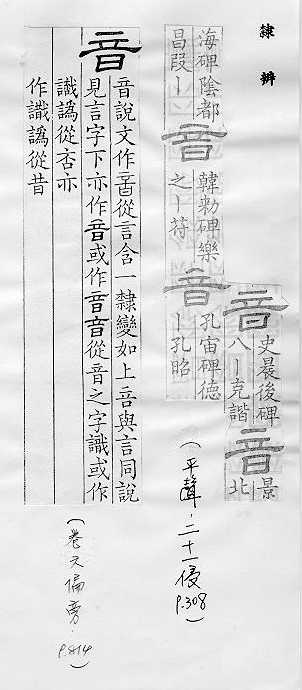 隸辨
音 史晨後碑
八丨克諧 音 北
海碑陰都
昌段丨 音 韓勑碑樂
之丨苻 音 孔宙碑德
丨孔昭
(平聲·二十一侵 P.308)
音 音說文作𠶷從言含一隸變如上音與言同說
見言字下亦作音或作音音從音之字識或作
識譌從否亦
作識譌從昔
(卷六偏旁·P.814)